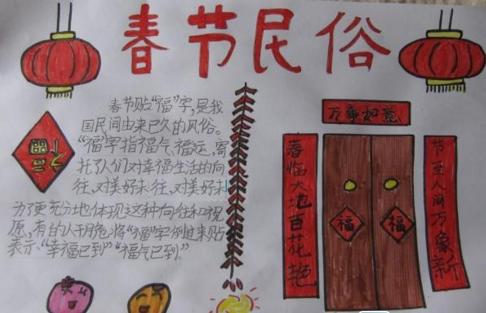 春节民俗
春节贴"福"字,是我
国民间由来已久的风俗。
"福"字指福气、福运,寄
托了人们对幸福生活的向
往,对美好未往,对美好礼
为了更充分地体现这种向往和祝
愿,有的人干脆将"福"字倒过来贴
表示"幸福已到""福气已到"。
福
万事如意
春临大地百花艳
福
福
节至人间万象新